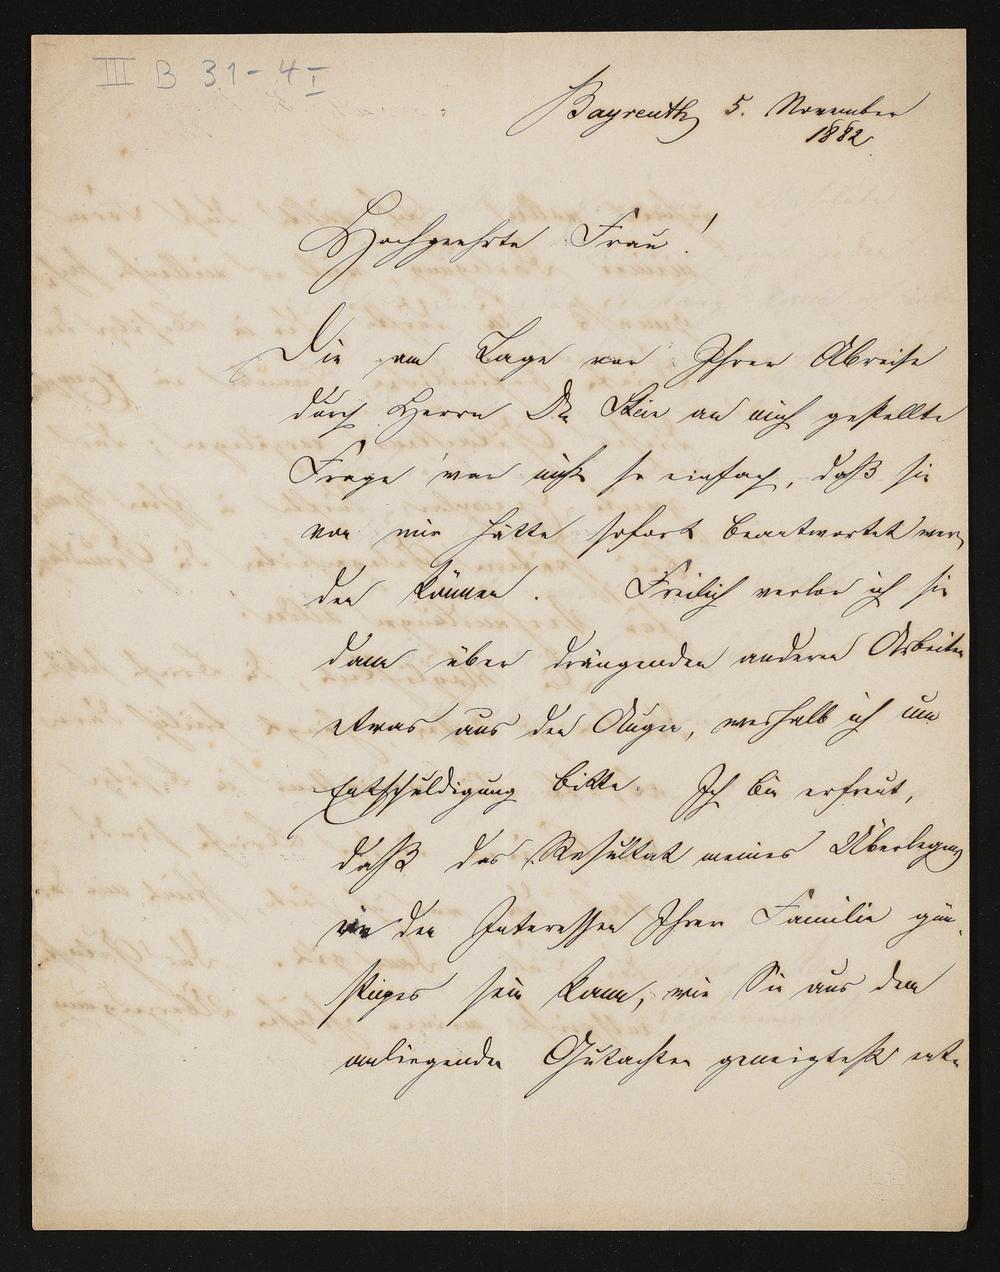 III B 31-4 I
Bayreuth 5. November
1882.
Hochgeehrte Frau!
Die am Tage vor Ihrer Abreise
durch Herrn Dr. Stein an mich gestellte
Frage war nicht so einfach, daß sie
von mir hätte sofort beantwortet wer-
den können. Freilich verlor ich sie
dann über drängenden anderen Arbeiten
etwas aus den Augen, weshalb ich um
Entschuldigung bitte. Ich bin erfreut,
daß das Resultat meiner Überlegung
in den Interessen Ihrer Familie gün-
stiges sein kann, wie Sie aus dem
anliegenden Gutachten geneigtest ent-